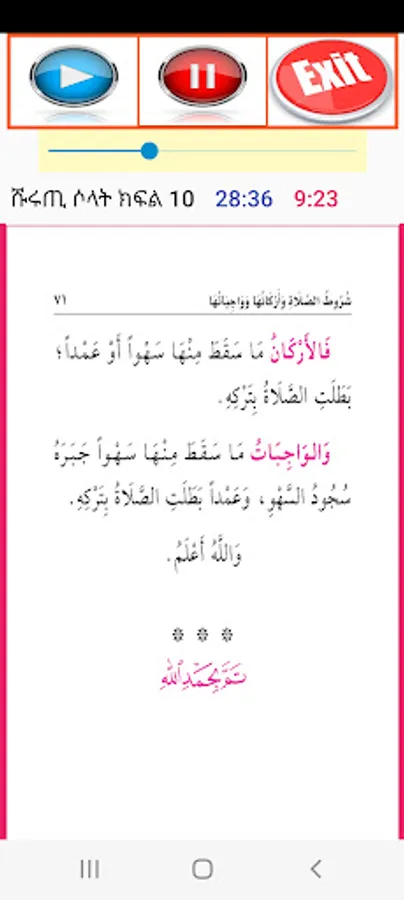 Exit
ሹሩጢ ሶላት ክፍል 10 28:36 9:23
شُرُوطُ الصَّلَاةِ وَأَرْكَانُهَا وَوَاجِبَاتُهَا ٧١
فَالأَرْكَانُ مَا سَقَطَ مِنْهَا سَهْواً أَوْ عَمْداً؛
بَطَلَتِ الصَّلَاةُ بِتَرْكِهِ.
وَالوَاجِبَاتُ مَا سَقَطَ مِنْهَا سَهْواً جَبَرَهُ
سُجُودُ السَّهْوِ، وَعَمْداً بَطَلَتِ الصَّلَاةُ بِتَرْكِهِ.
وَاللَّهُ أَعْلَمُ.
تَمَّ بِحَمْدِ اللَّهِ